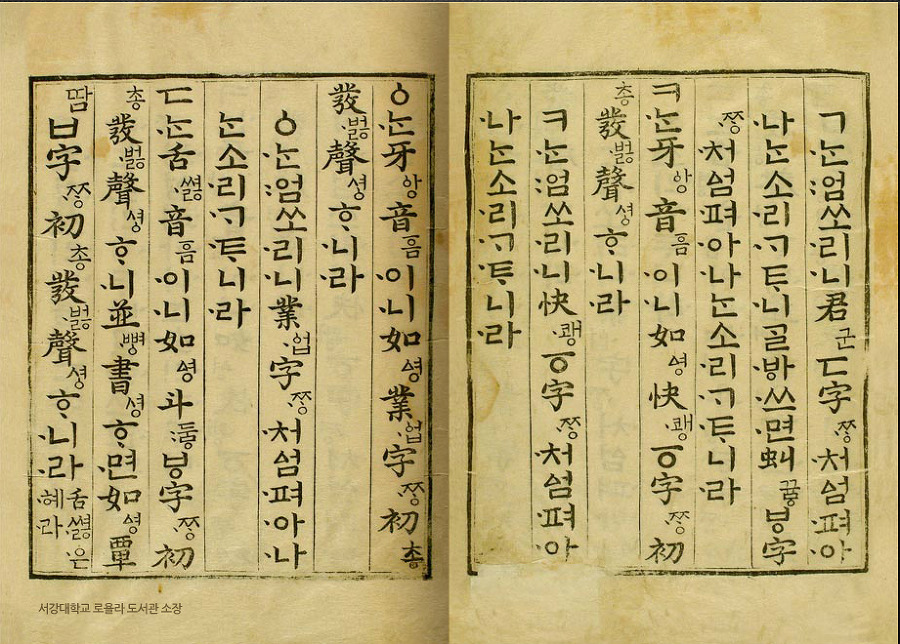 ㄱᄂᆞᆫ엄쏘리니君군ㄷ字ᄍᆞᆼ처ᅀᅥᆷ펴아
나ᄂᆞᆫ소리ᄀᆞᄐᆞ니ᄀᆞᆯᄫᅡ쓰면虯뀨ᇢㅸ字
ᄍᆞᆼ처ᅀᅥᆷ펴아나ᄂᆞᆫ소리ᄀᆞᄐᆞ니라
ㅋᄂᆞᆫ牙ᅌᅡᆼ音ᅙᅳᆷ이니如ᅀᅧᆼ快쾡ㆆ字ᄍᆞᆼ初
총發벓聲셩ᄒᆞ니라
ㅋᄂᆞᆫ엄쏘리니快쾡ㆆ字ᄍᆞᆼ처ᅀᅥᆷ펴아
나ᄂᆞᆫ소리ᄀᆞᄐᆞ니라
ㆁᄂᆞᆫ牙ᅌᅡᆼ音ᅙᅳᆷ이니如ᅀᅧᆼ業업字ᄍᆞᆼ初총
發벓聲셩ᄒᆞ니라
ㆁᄂᆞᆫ엄쏘리니業업字ᄍᆞᆼ처ᅀᅥᆷ펴아나
ᄂᆞᆫ소리ᄀᆞᄐᆞ니라
ㄷᄂᆞᆫ舌쎯音ᅙᅳᆷ이니如ᅀᅧᆼ斗두ᇢㅸ字ᄍᆞᆼ初
총發벓聲셩ᄒᆞ니並뼝書셩ᄒᆞ면如ᅀᅧᆼ覃
땀ㅂ字ᄍᆞᆼ初총發벓聲셩ᄒᆞ니라舌쎯은혜라
서강대학교 로욜라 도서관 소장